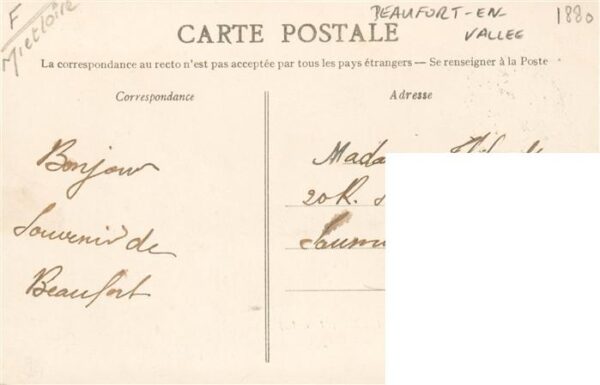 F
M et Loire
BEAUFORT-EN-
VALLEE
1880
CARTE POSTALE
La correspondance au recto n'est pas acceptée par tous les pays étrangers — Se renseigner à la Poste
Correspondance
Bonjour
Souvenir de
Beaufort
Adresse
20 R.